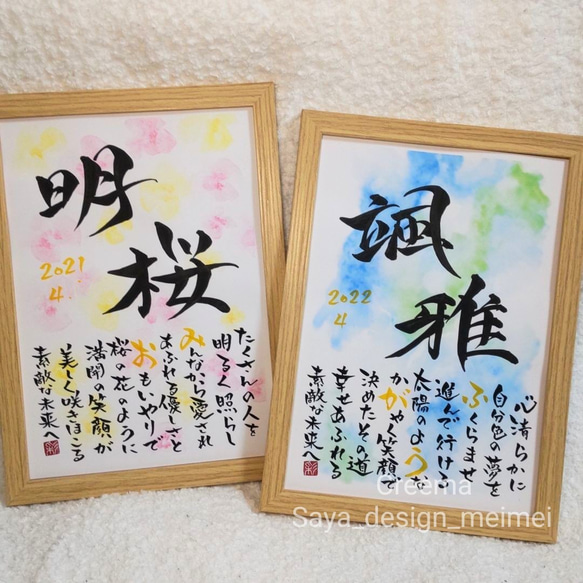 明桜
2021
4
たくさんの人を
明るく照らし
みんなから愛され
あふれる優しさと
おもいやりで
桜の花のように
満開の笑顔が
美しく咲きほこる
素敵な未来へ
颯雅
2022
4
心清らかに
自分色の夢を
ふくらませ
進んで行ける
太陽のような
かがやく笑顔で
決めたその道
幸せあふれる
素敵な未来へ
Creema
Saya_design_meimei